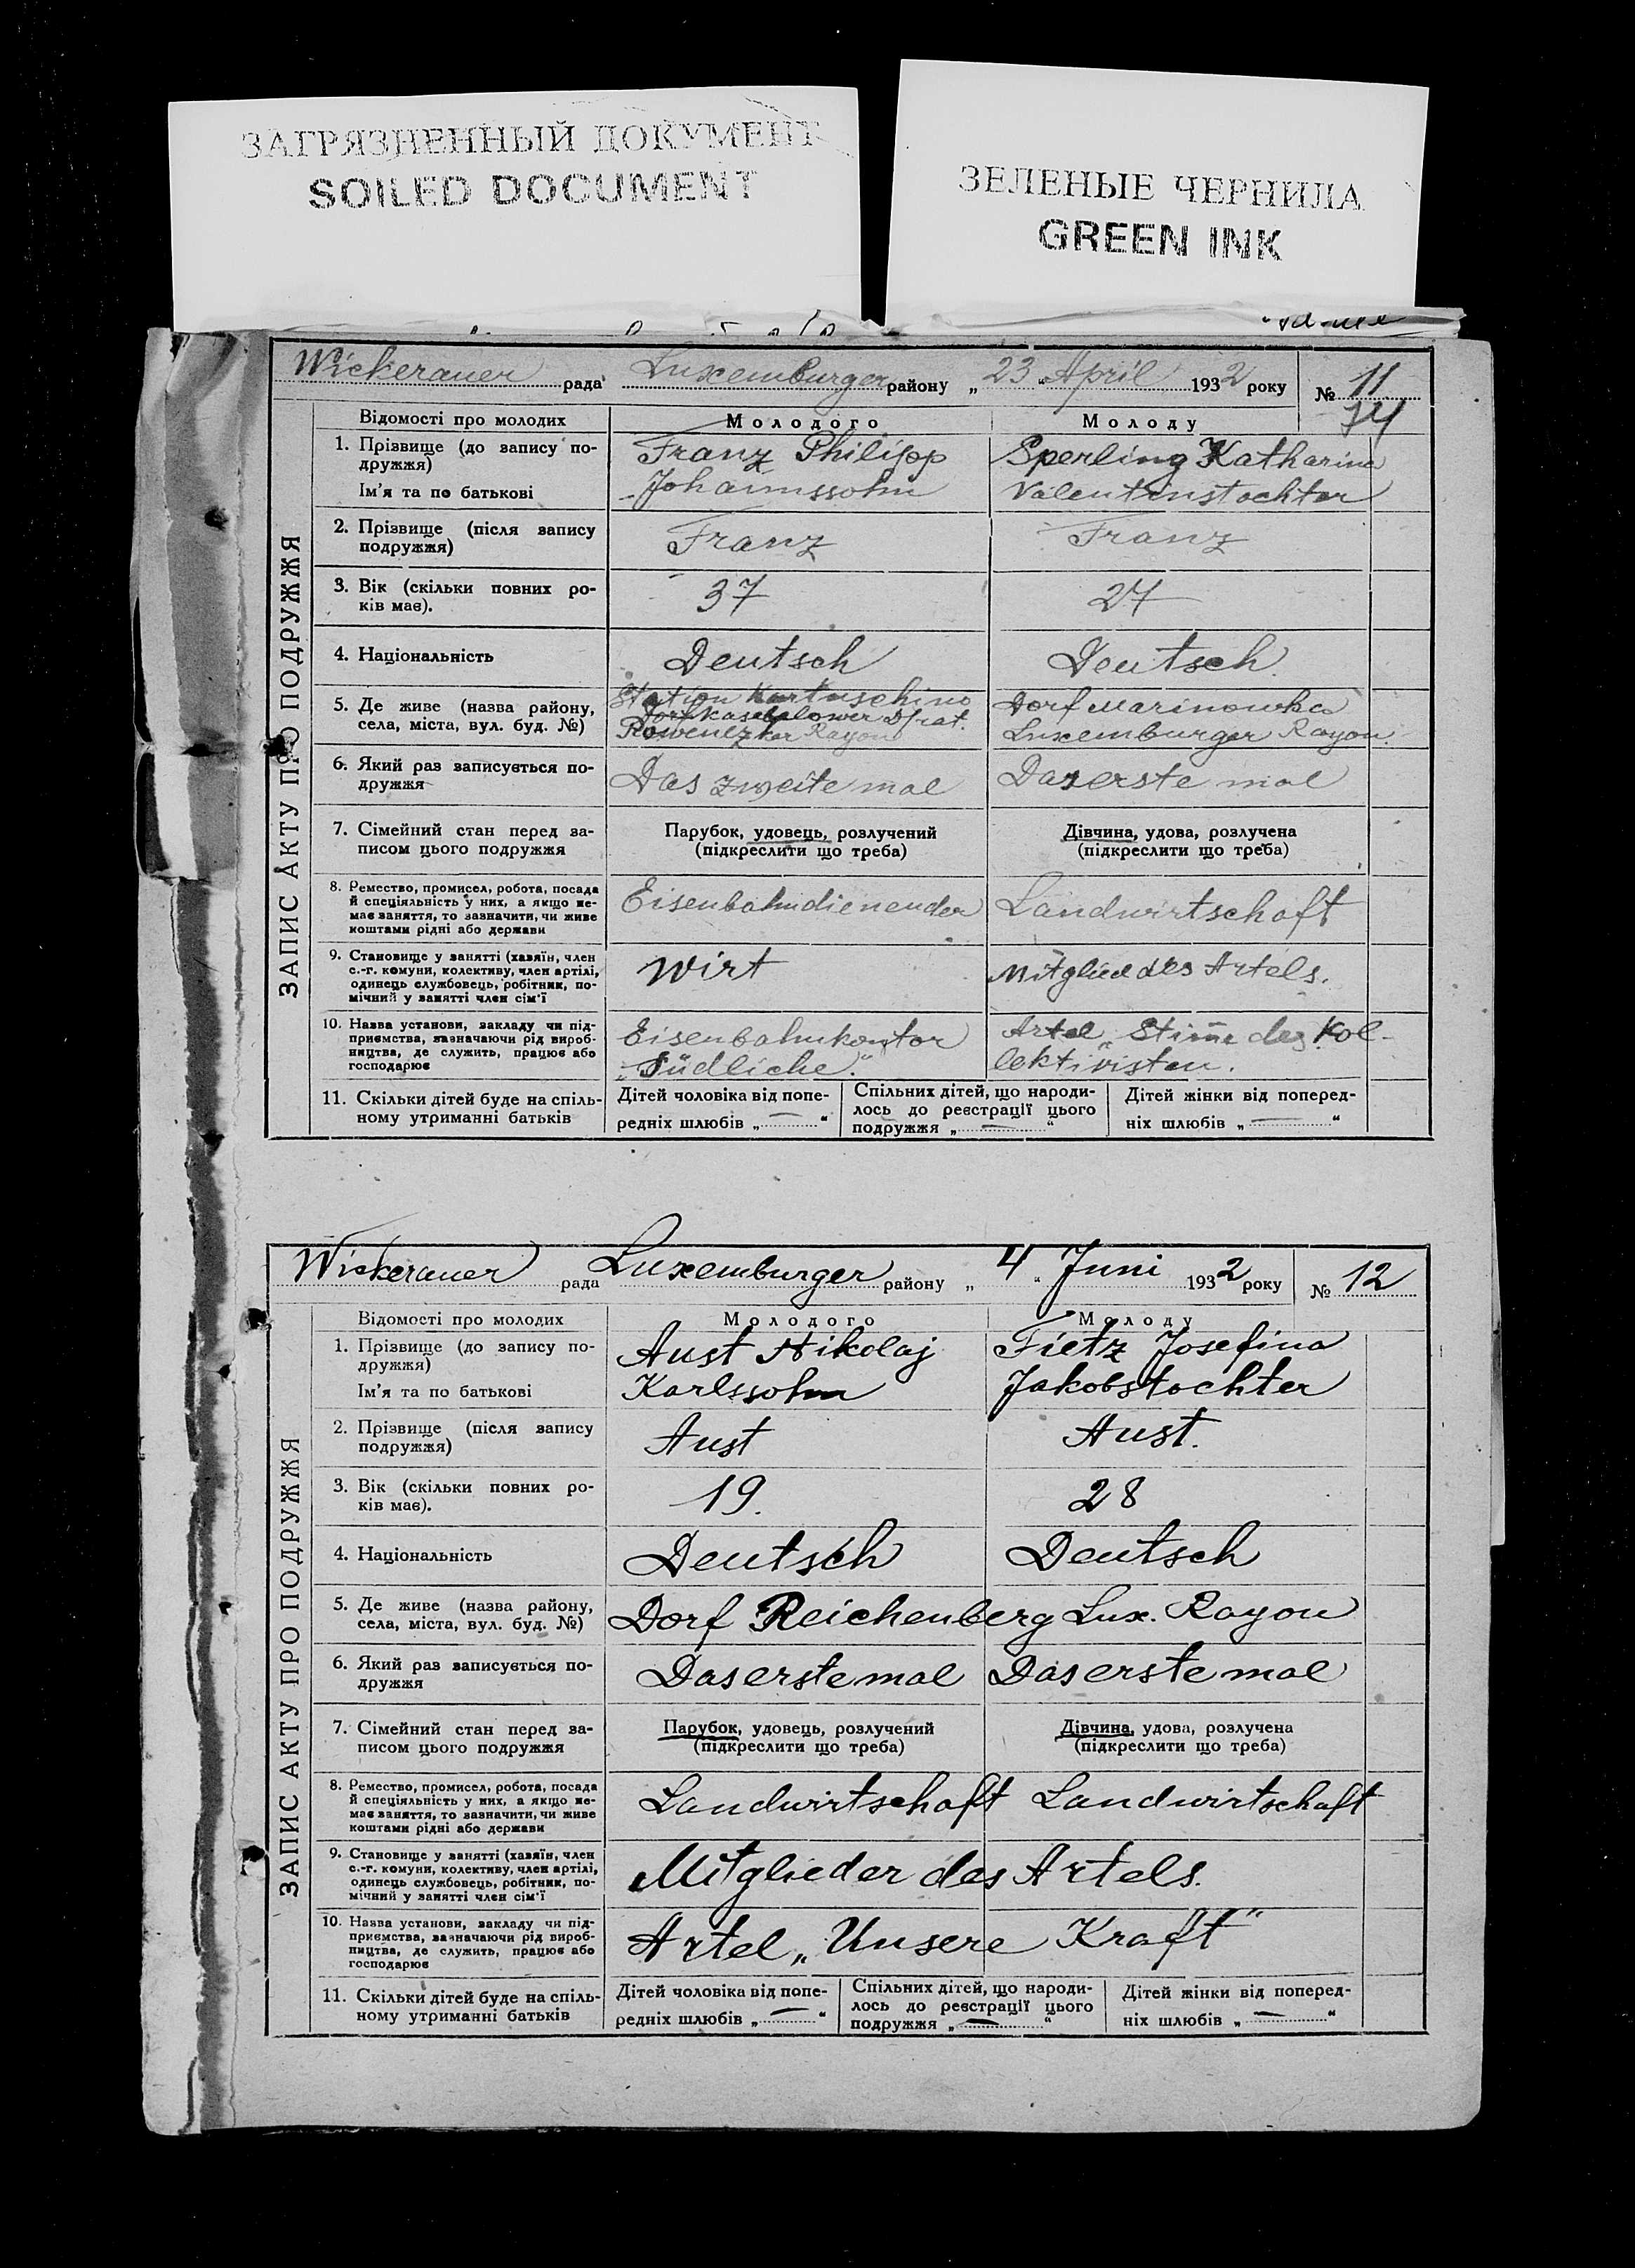 ЗАГРЯЗНЕННЫЙ ДОКУМЕНТ
SOILED DOCUMENT
ЗЕЛЕНЫЕ ЧЕРНИЛА
GREEN INK
ЗАПИС АКТУ ПРО ПОДРУЖЖЯ
Wickerauer рада Luxemburger району „23" April 1932 року № 11
14
Відомості про молодих Молодого Молоду
1. Прізвище (до запису по- Franz Philipp Sperling Katharina
дружжя)
Ім'я та по батькові Johannssohn Valentinstochter
2. Прізвище (після запису Franz Franz
подружжя)
3. Вік (скільки повних ро- 37 27
ків має).
4. Національність Deutsch Deutsch.
5. Де живе (назва району, Station Kartuschino Dorf Marinowka
села, міста, вул. буд. №) Rowenezker Rayon Luxemburger Rayon.
6. Який раз записується по- Das zweite mal Das erste mal
дружжя
7. Сімейний стан перед за- Парубок, удовець, розлучений Дівчина, удова, розлучена
писом цього подружжя (підкреслити що треба) (підкреслити що треба)
8. Ремество, промисел, робота, посада Eisenbahndienender Landwirtschaft
й спеціяльність у них, а якщо не-
має заняття, то зазначити, чи живе
коштами рідні або держави
9. Становище у занятті (хазяїн, член Wirt Mitglied des Artels.
с.-г. комуни, колективу, член артілі,
одинець службовець, робітник, по-
мічний у занятті член сім'ї
10. Назва установи, закладу чи під- Eisenbahnkontor Artel „Stim̄e des Kol-
приємства, зазначаючи рід вироб- „Südliche." lektivisten.
ництва, де служить, працює або
господарює
11. Скільки дітей буде на спіль- Дітей чоловіка від попе- Спільних дітей, що народи- Дітей жінки від поперед-
ному утриманні батьків редніх шлюбів „—" лось до реєстрації цього ніх шлюбів „—"
подружжя „—"
ЗАПИС АКТУ ПРО ПОДРУЖЖЯ
Wickerauer рада Luxemburger району „4" Juni 1932 року № 12
Відомості про молодих Молодого Молоду
1. Прізвище (до запису по- Aust Nikolaj Fietz Josefina
дружжя)
Ім'я та по батькові Karlssohn Jakobstochter
2. Прізвище (після запису Aust Aust.
подружжя)
3. Вік (скільки повних ро- 19. 28
ків має).
4. Національність Deutsch Deutsch
5. Де живе (назва району, Dorf Reichenberg Lux. Rayon
села, міста, вул. буд. №)
6. Який раз записується по- Das erste mal Das erste mal
дружжя
7. Сімейний стан перед за- Парубок, удовець, розлучений Дівчина, удова, розлучена
писом цього подружжя (підкреслити що треба) (підкреслити що треба)
8. Ремество, промисел, робота, посада Landwirtschaft Landwirtschaft
й спеціяльність у них, а якщо не-
має заняття, то зазначити, чи живе
коштами рідні або держави
9. Становище у занятті (хазяїн, член Mitglieder des Artels.
с.-г. комуни, колективу, член артілі,
одинець службовець, робітник, по-
мічний у занятті член сім'ї
10. Назва установи, закладу чи під- Artel „Unsere Kraft"
приємства, зазначаючи рід вироб-
ництва, де служить, працює або
господарює
11. Скільки дітей буде на спіль- Дітей чоловіка від попе- Спільних дітей, що народи- Дітей жінки від поперед-
ному утриманні батьків редніх шлюбів „—" лось до реєстрації цього ніх шлюбів „—"
подружжя „—"